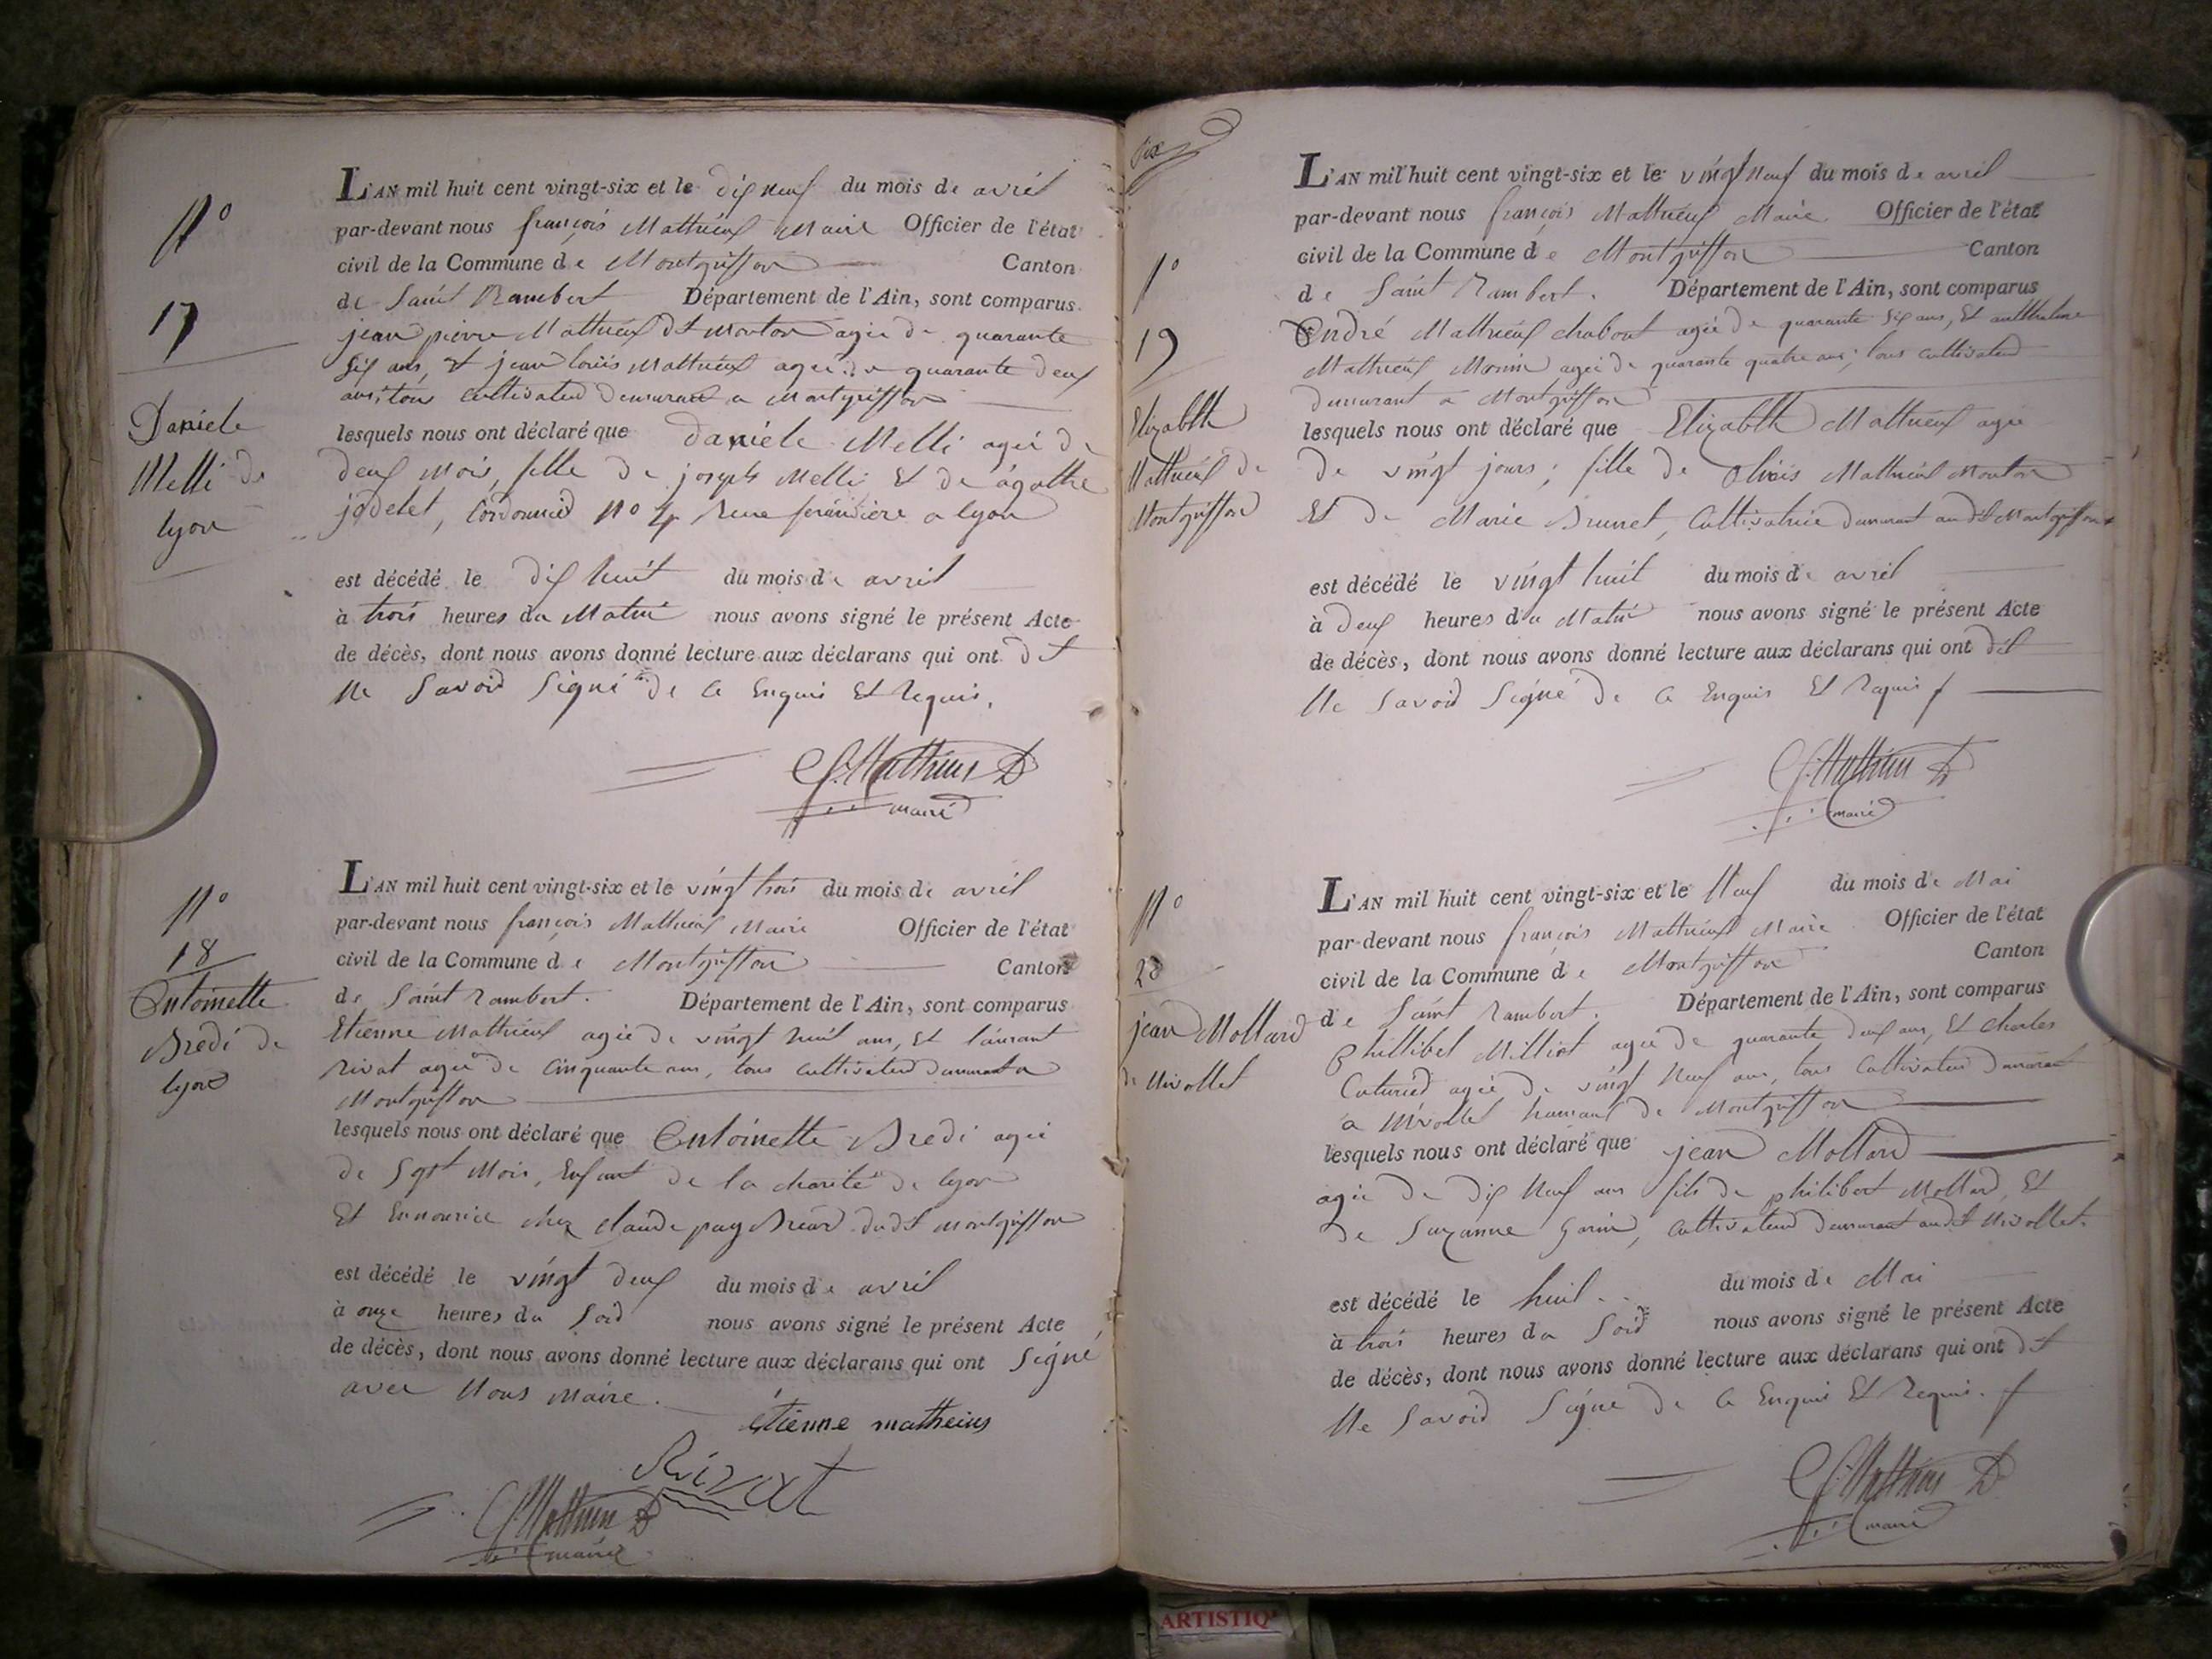 N°
17
Daniele
Melli de
lyon
L'AN mil huit cent vingt-six et le dix neuf du mois de avril
par-devant nous françois Mathieux Maire Officier de l'état
civil de la Commune de Montgriffon Canton
de Saint Rambert Département de l'Ain, sont comparus
jean pierre Mathieux dt Monton agée de quarante
Six ans, et jean louis Mathieux agée de quarante deux
ans, tous cultivateur demeurant a Montgriffon
lesquels nous ont déclaré que daniéle Melli agée de
deux Mois, fille de joseph Melli Et de agathe
jodelet, Cordonnied N° 4 Rue ferandière a lyon
est décédé le dix huit du mois de avril
à trois heures du Matin nous avons signé le présent Acte
de décès, dont nous avons donné lecture aux déclarans qui ont dt
Ne Savoid Signé de Ce Enquis Et Requis.
f. Mathieux D
maire
N°
18
Antoinette
Bredi de
lyon
L'AN mil huit cent vingt-six et le vingt trois du mois de avril
par-devant nous françois Mathieux Maire Officier de l'état
civil de la Commune de Montgriffon Canton
de Saint Rambert. Département de l'Ain, sont comparus
Etienne Mathieux agée de vingt huit ans, Et laurant
Rivat agée de Cinquante ans, tous cultivateur demeurant a
Montgriffon
lesquels nous ont déclaré que Antoinette Bredi agée
de Sept Mois, Enfant de la charité de lyon
Et Ennourice chez claude puy dudt Montgriffon
est décédé le vingt deux du mois de avril
à onze heures du Soid nous avons signé le présent Acte
de décès, dont nous avons donné lecture aux déclarans qui ont Signé
avec Nous Maire.
étienne matheius
Rivat
f. Mathieux D
maire
Six
N°
19
Elizabth
Mathieux de
Montgriffon
L'AN mil huit cent vingt-six et le vingt Neuf du mois de avril
par-devant nous françois Mathieux Maire Officier de l'état
civil de la Commune de Montgriffon Canton
de Saint Rambert. Département de l'Ain, sont comparus
André Mathieux chabout agée de quarante Six ans, Et
Mathieux Monin agée de quarante quatre ans, tous cultivateur
demeurant a Montgriffon
lesquels nous ont déclaré que Elizabth Mathieux agée
de vingt jours, fille de Mathieux Monton
Et de Marie Brunet, Cultivatrice demeurant audit Montgriffon
est décédé le vingt huit du mois de avril
à deux heures du Matin nous avons signé le présent Acte
de décès, dont nous avons donné lecture aux déclarans qui ont dit
Ne Savoid Signé de Ce Enquis Et Requis
f. Mathieux D
maire
N°
20
jean Mollard
de Nivollet
L'AN mil huit cent vingt-six et le Neuf du mois de Mai
par-devant nous françois Mathieux Maire Officier de l'état
civil de la Commune de Montgriffon Canton
de Saint Rambert. Département de l'Ain, sont comparus
Phillibet Milliot agée de quarante deux ans, Et charles
Cuturied agée de vingt Neuf ans, tous Cultivateur demeurant
a Nivollet hameau de Montgriffon
lesquels nous ont déclaré que jean Mollard
agée de dix Neuf ans fils de philibert Mollard, Et
de Suzanne Garin, cultivateur demeurant audt Nivollet.
est décédé le huit. du mois de Mai
à trois heures du Soid nous avons signé le présent Acte
de décès, dont nous avons donné lecture aux déclarans qui ont dt
Ne Savoid Signe de Ce Enquis Et Requis.
f. Mathieux D
maire
ARTISTIQ